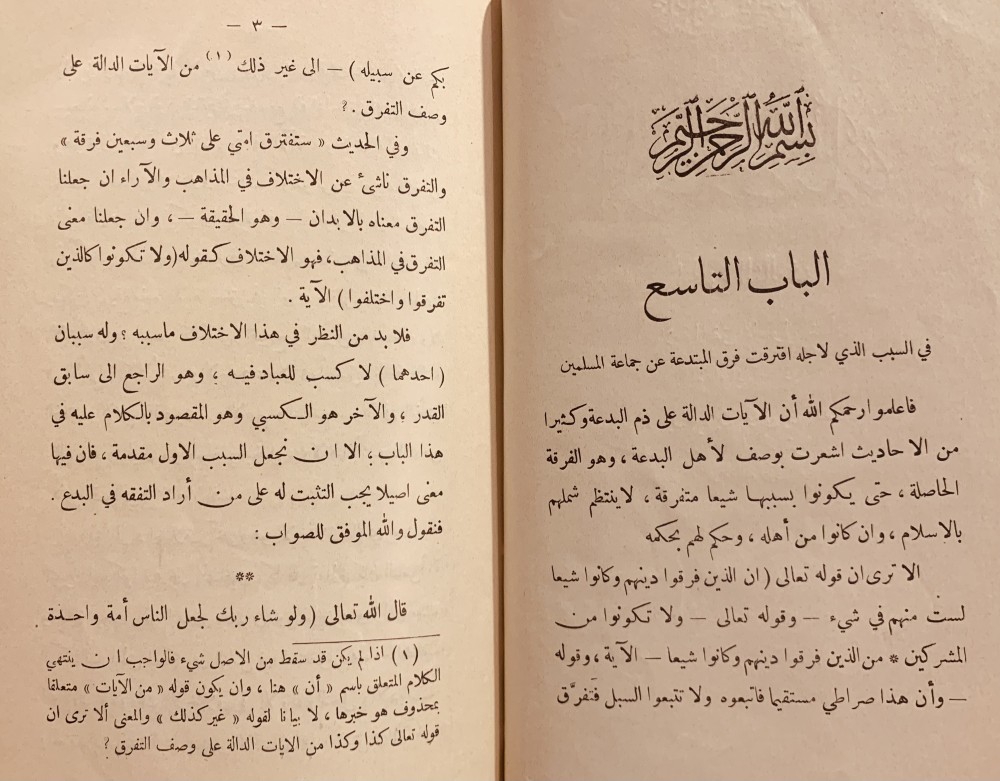 بسم الله الرحمن الرحيم
الباب التاسع
في السبب الذي لاجله افترقت فرق المبتدعة عن جماعة المسلمين
فاعلموا رحمكم الله أن الآيات الدالة على ذم البدعة وكثيرا
من الاحاديث اشعرت بوصف لأهل البدعة ، وهو الفرقة
الحاصلة ، حتى يكونوا بسببها شيعا متفرقة ، لا ينتظم شملهم
بالاسلام ، وان كانوا من أهله ، وحكم لهم بحكمه
الا ترى ان قوله تعالى ( ان الذين فرقوا دينهم وكانوا شيعا
لست منهم في شيء — وقوله تعالى — ولا تكونوا من
المشركين * من الذين فرقوا دينهم وكانوا شيعا — الآية ، وقوله
— وأن هذا صراطي مستقيما فاتبعوه ولا تتبعوا السبل فتفرَّق
— ٣ —
بكم عن سبيله ) — الى غير ذلك (١) من الآيات الدالة على
وصف التفرق . ؟
وفي الحديث « ستفترق امتي على ثلاث وسبعين فرقة »
والتفرق ناشئ عن الاختلاف في المذاهب والآراء ان جعلنا
التفرق معناه بالابدان — وهو الحقيقة — ، وان جعلنا معنى
التفرق في المذاهب ، فهو الاختلاف كقوله ( ولا تكونوا كالذين
تفرقوا واختلفوا ) الآية .
فلا بد من النظر في هذا الاختلاف ماسببه ؟ وله سببان
( احدهما ) لا كسب للعباد فيه ؛ وهو الراجع الى سابق
القدر ، والآخر هو الكسبي وهو المقصود بالكلام عليه في
هذا الباب ؛ الا ان نجعل السبب الاول مقدمة ، فان فيها
معنى اصيلا يجب التثبت له على من أراد التفقه في البدع .
فنقول والله الموفق للصواب :
**
قال الله تعالى ( ولو شاء ربك لجعل الناس أمة واحدة .
( ١ ) اذا لم يكن قد سقط من الاصل شيء فالواجب ان ينتهي
الكلام المتعلق باسم « أن » هنا ، وان يكون قوله « من الآيات » متعلقا
بمحذوف هو خبرها ، لا بيانا لقوله « غير كذلك » والمعنى ألا ترى ان
قوله تعالى كذا وكذا من الايات الدالة على وصف التفرق ؟